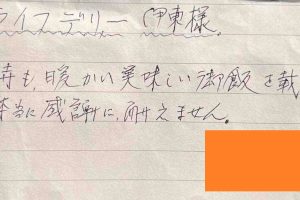 ライフデリー 伊東様
時も、暖かい美味しい御飯を載
本当に感謝に、耐えません。